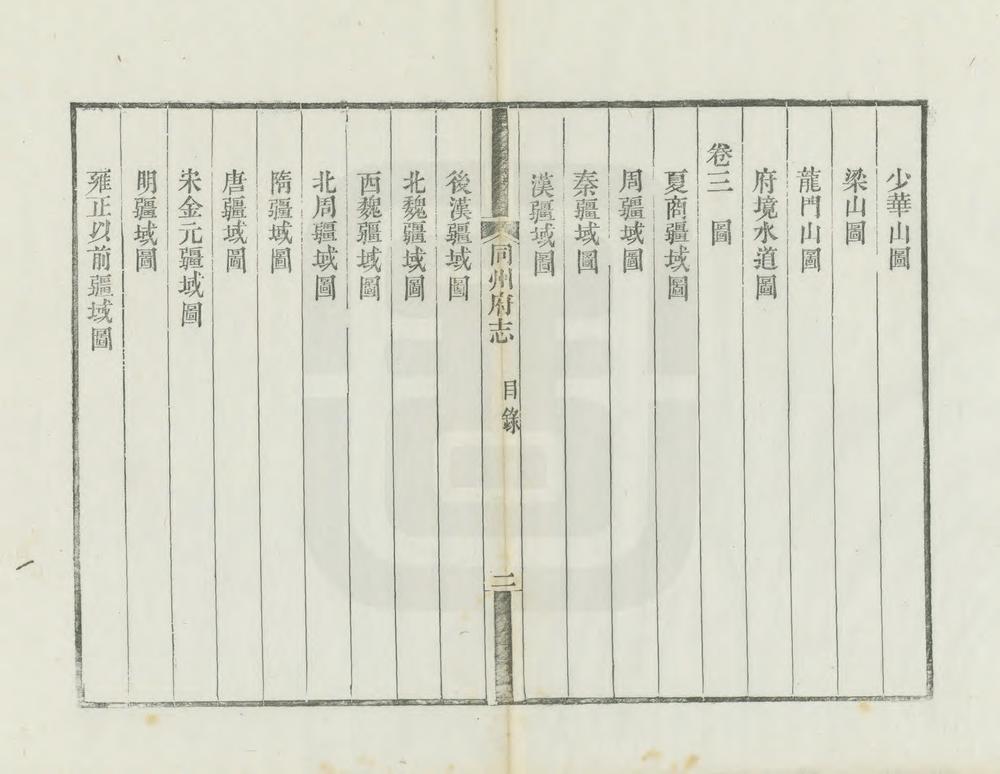 少華山圖
梁山圖
龍門山圖
府境水道圖
卷三　圖
夏商疆域圖
周疆域圖
秦疆域圖
漢疆域圖
同州府志　目錄　二
後漢疆域圖
北魏疆域圖
西魏疆域圖
北周疆域圖
隋疆域圖
唐疆域圖
宋金元疆域圖
明疆域圖
雍正以前疆域圖